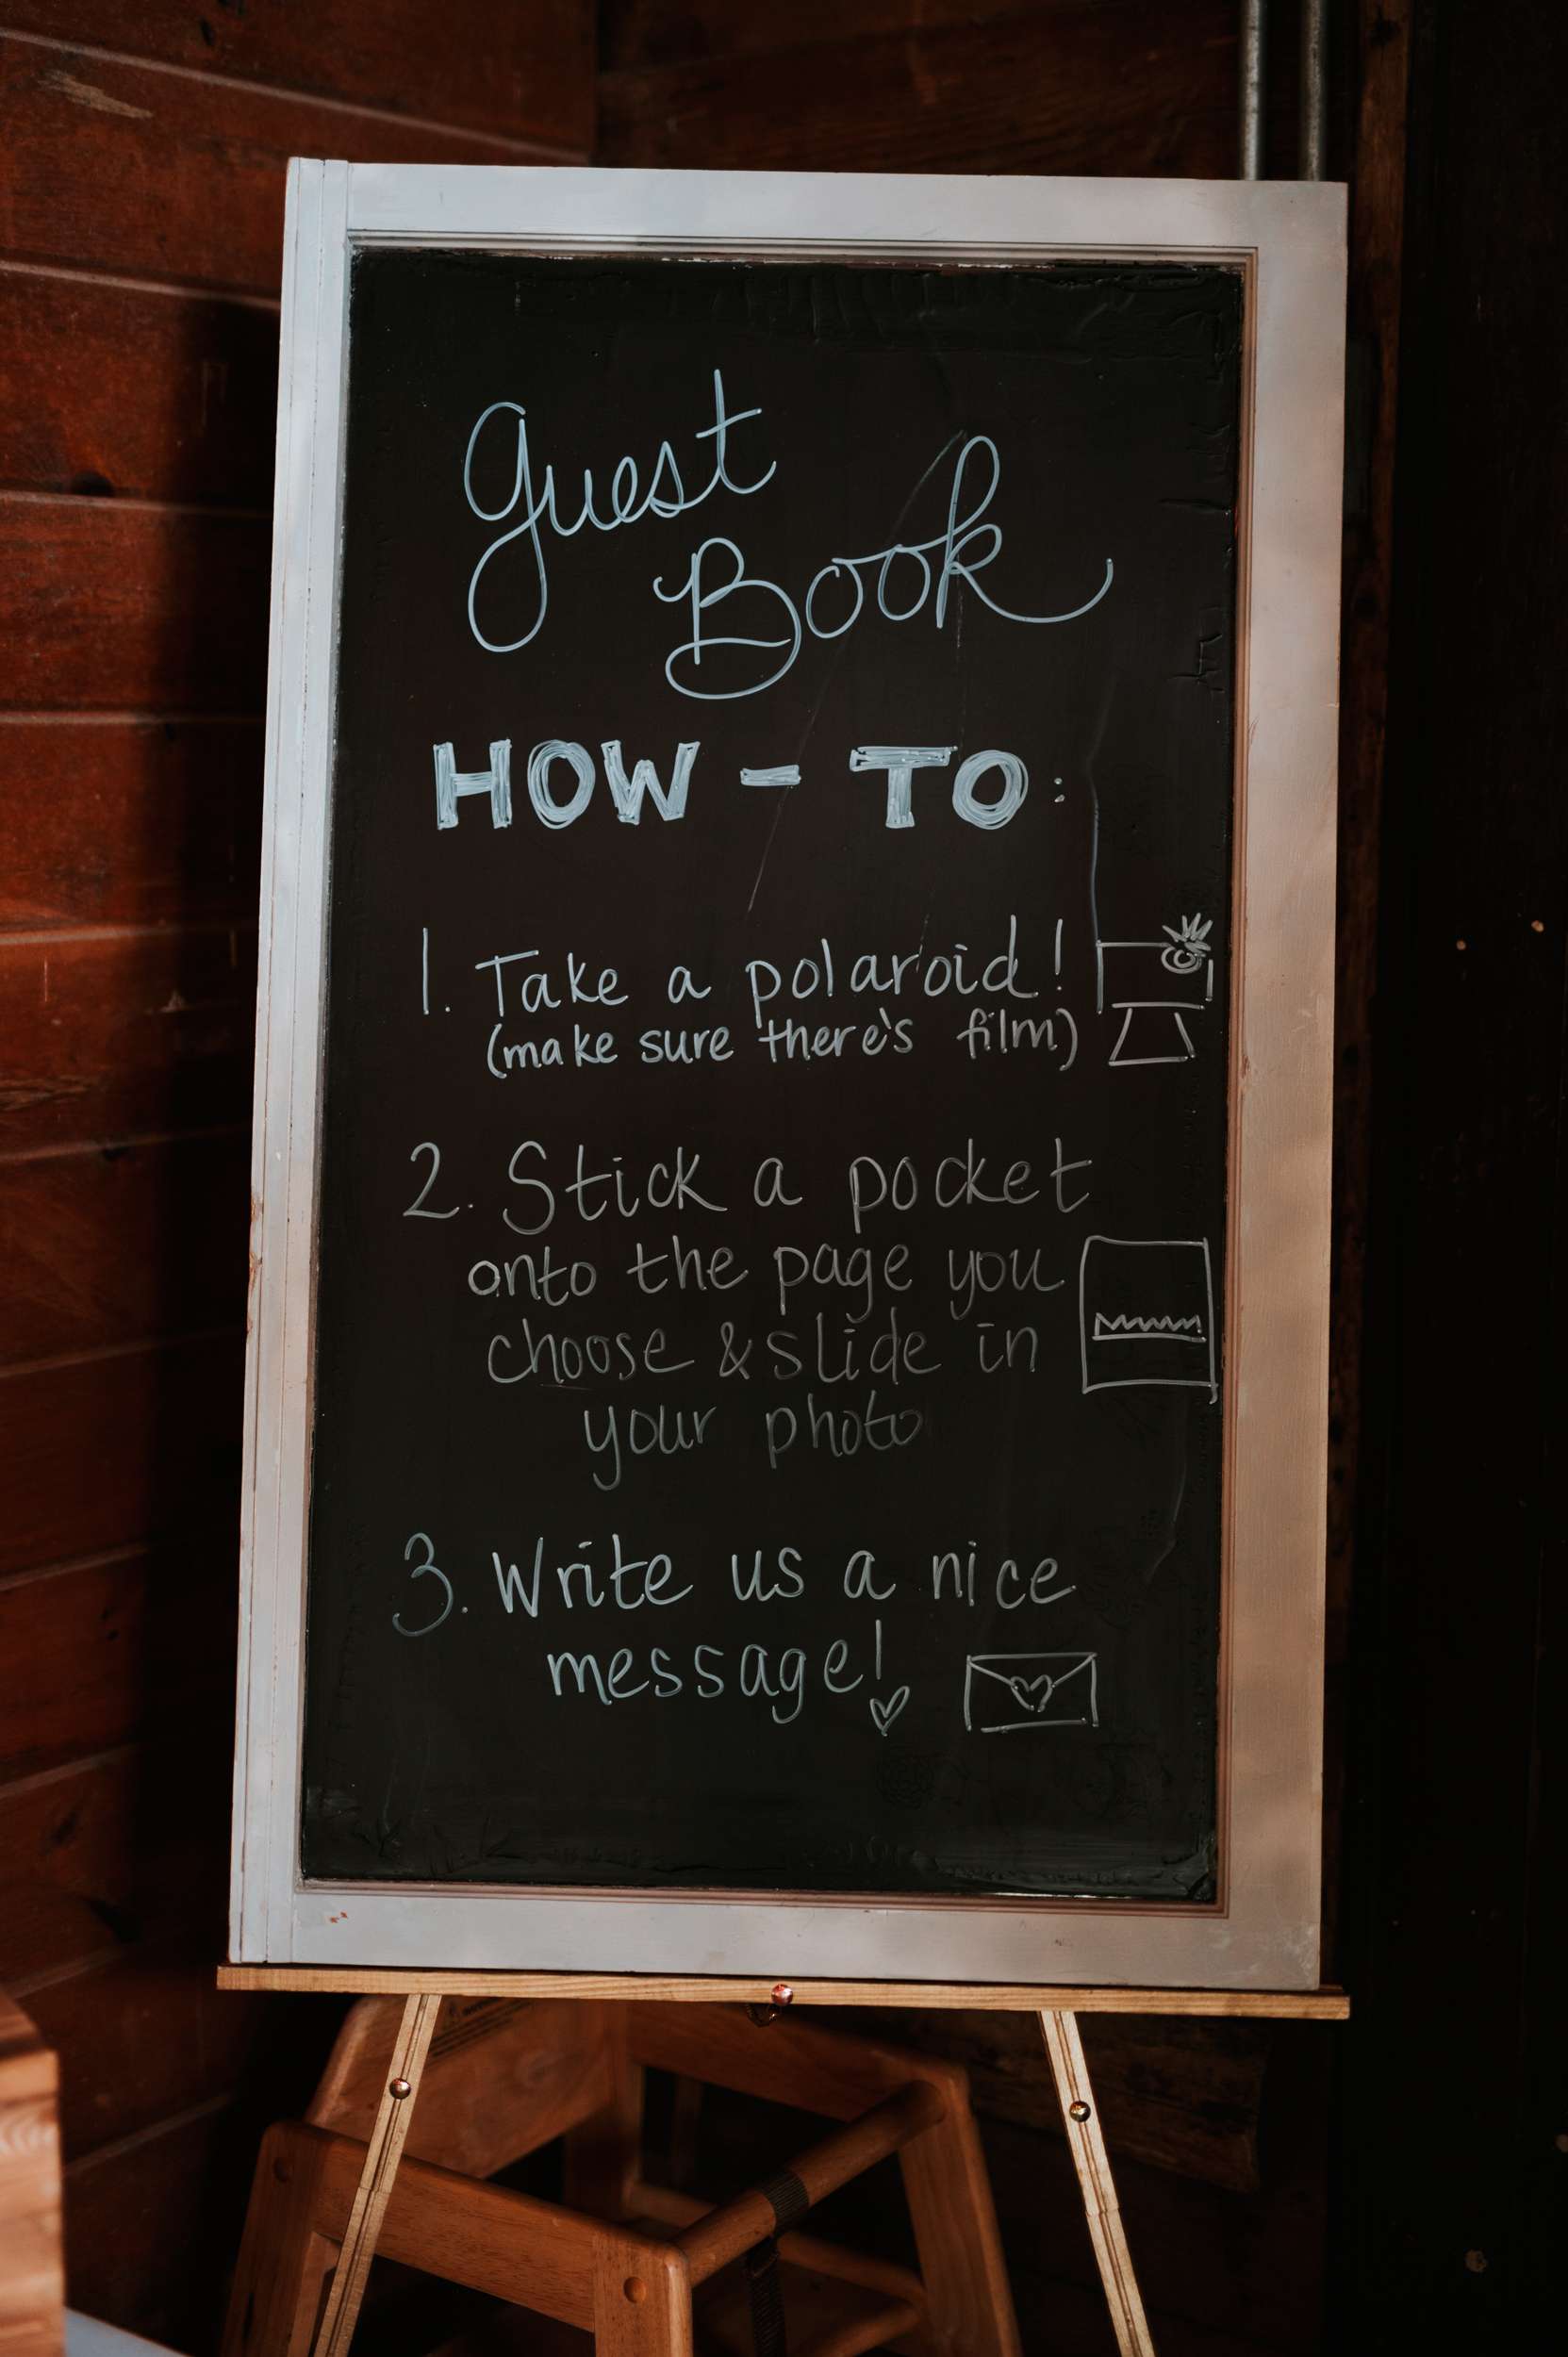 Guest
Book
HOW - TO:
1. Take a polaroid!
(make sure there's film)
2. Stick a pocket
onto the page you
choose & slide in
your photo
3. Write us a nice
message!